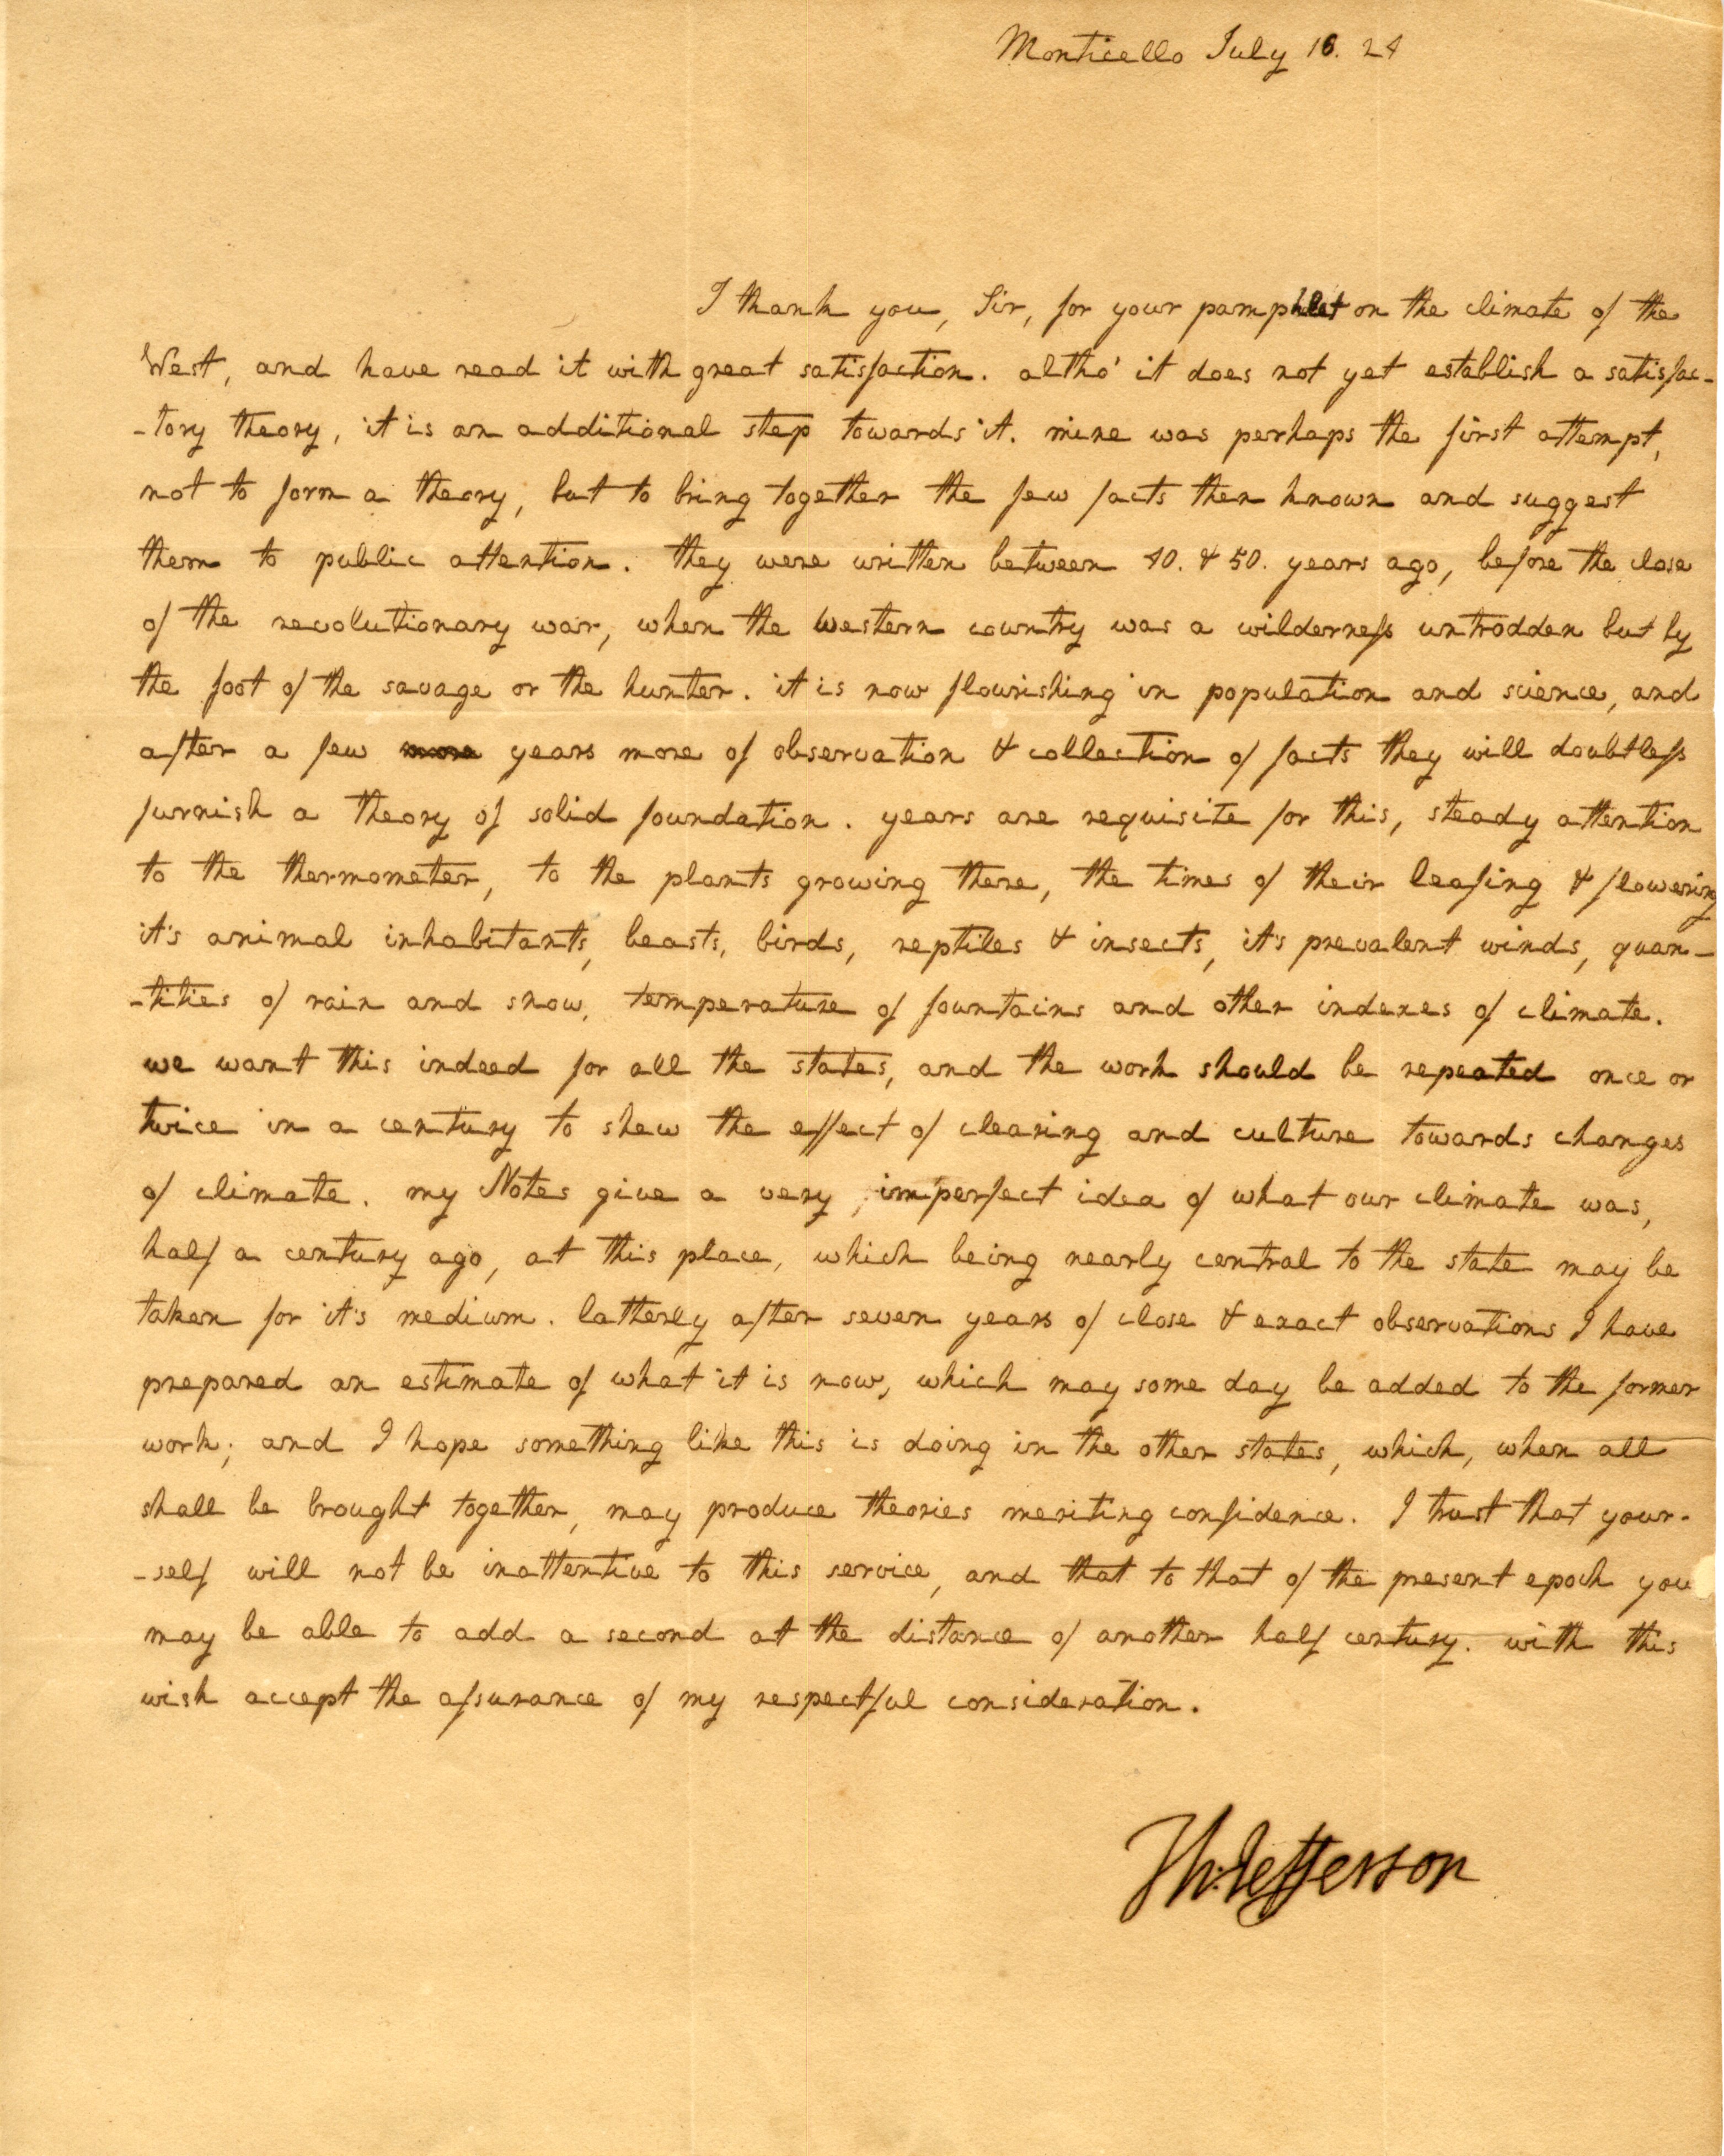 Monticello July 16. 24
I thank you, Sir, for your pamphlet on the climate of the
West, and have read it with great satisfaction. altho' it does not yet establish a satisfac-
-tory theory, it is an additional step towards it. mine was perhaps the first attempt,
not to form a theory, but to bring together the few facts then known and suggest
them to public attention. they were written between 40. & 50. years ago, before the close
of the revolutionary war, when the Western country was a wilderness untrodden but by
the foot of the savage or the hunter. it is now flourishing in population and science, and
after a few more years more of observation & collection of facts they will doubtless
furnish a theory of solid foundation. years are requisite for this, steady attention
to the thermometer, to the plants growing there, the times of their leafing & flowering
it's animal inhabitants, beasts, birds, reptiles & insects, it's prevalent winds, quan-
-tities of rain and snow, temperature of fountains and other indexes of climate.
we want this indeed for all the states, and the work should be repeated once or
twice in a century to shew the effect of clearing and culture towards changes
of climate. my Notes give a very imperfect idea of what our climate was,
half a century ago, at this place, which being nearly central to the state may be
taken for it's medium. latterly after seven years of close & exact observations I have
prepared an estimate of what it is now, which may some day be added to the former
work; and I hope something like this is doing in the other states, which, when all
shall be brought together, may produce theories meriting confidence. I trust that your-
-self will not be inattentive to this service, and that to that of the present epoch you
may be able to add a second at the distance of another half century. with this
wish accept the assurance of my respectful consideration.
Th: Jefferson